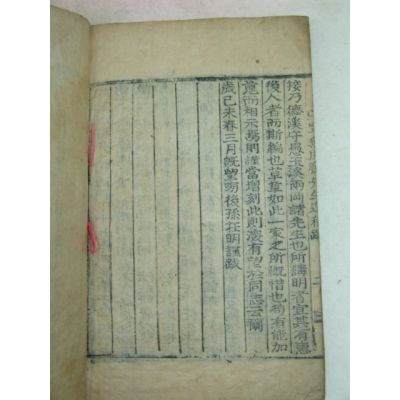 接乃德溪守愚玉溪兩岡諸先生也所講明者宜其有惠
後人者而斯編也草草如此一家之所慨惜也芶有能加
蒐而相示焉則謹當增刻此則深有望於同志云爾
歲己未春三月旣望朔後孫在明謹跋